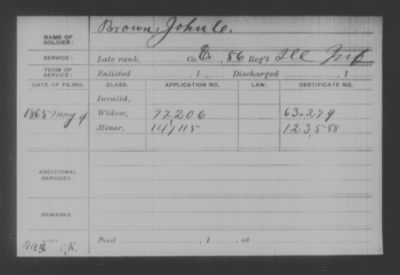 NAME OF SOLDIER: Brown, John C.
SERVICE: Late rank, Co. E, 56 Reg't Ill Inf
TERM OF SERVICE: Enlisted , 1 . Discharged , 1
DATE OF FILING. CLASS. APPLICATION NO. LAW. CERTIFICATE NO.
Invalid,
1865 May 9 Widow, 92206 63.279
Minor, 147115 123,588
ADDITIONAL SERVICES:
REMARKS:
Died , 1 , at